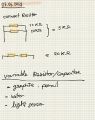 convert Resistor
10 KΩ
10KΩ
= 5KΩ
= 20KΩ
variable Resistor/capacitor
- graphite - pencil
- water
- light sensor